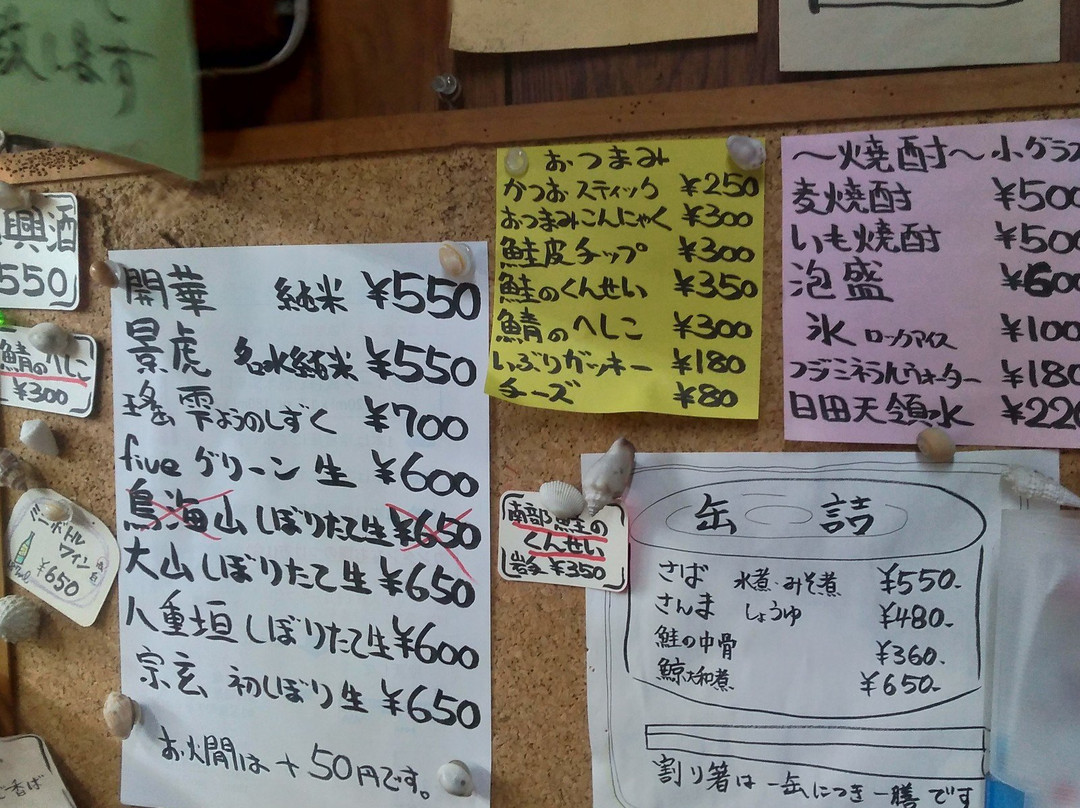 します
興酒
550
鯖のへしこ
¥300
ボトル
ワイン
¥650
開華 純米 ¥550
景虎 名水純米 ¥550
瑤雫ようのしずく ¥700
five グリーン 生 ¥600
鳥海山 しぼりたて生 ¥650
大山 しぼりたて生 ¥650
八重垣 しぼりたて生 ¥600
宗玄 初しぼり生 ¥650
お燗は +50円です。
おつまみ
かつおスティック ¥250
おつまみこんにゃく ¥300
鮭皮チップ ¥300
鮭のくんせい ¥350
鯖のへしこ ¥300
いぶりガッキー ¥180
チーズ ¥80
～焼酎～ 小グラス
麦焼酎 ¥500
いも焼酎 ¥500
泡盛 ¥600
氷 ロックアイス ¥100
フジミネラルウォーター ¥180
日田天領水 ¥220
南部鮭の
くんせい
岩手 ¥350
缶詰
さば 水煮・みそ煮 ¥550-
さんま しょうゆ ¥480-
鮭の中骨 ¥360-
鯨大和煮 ¥650-
割り箸は 一缶につき 一膳です